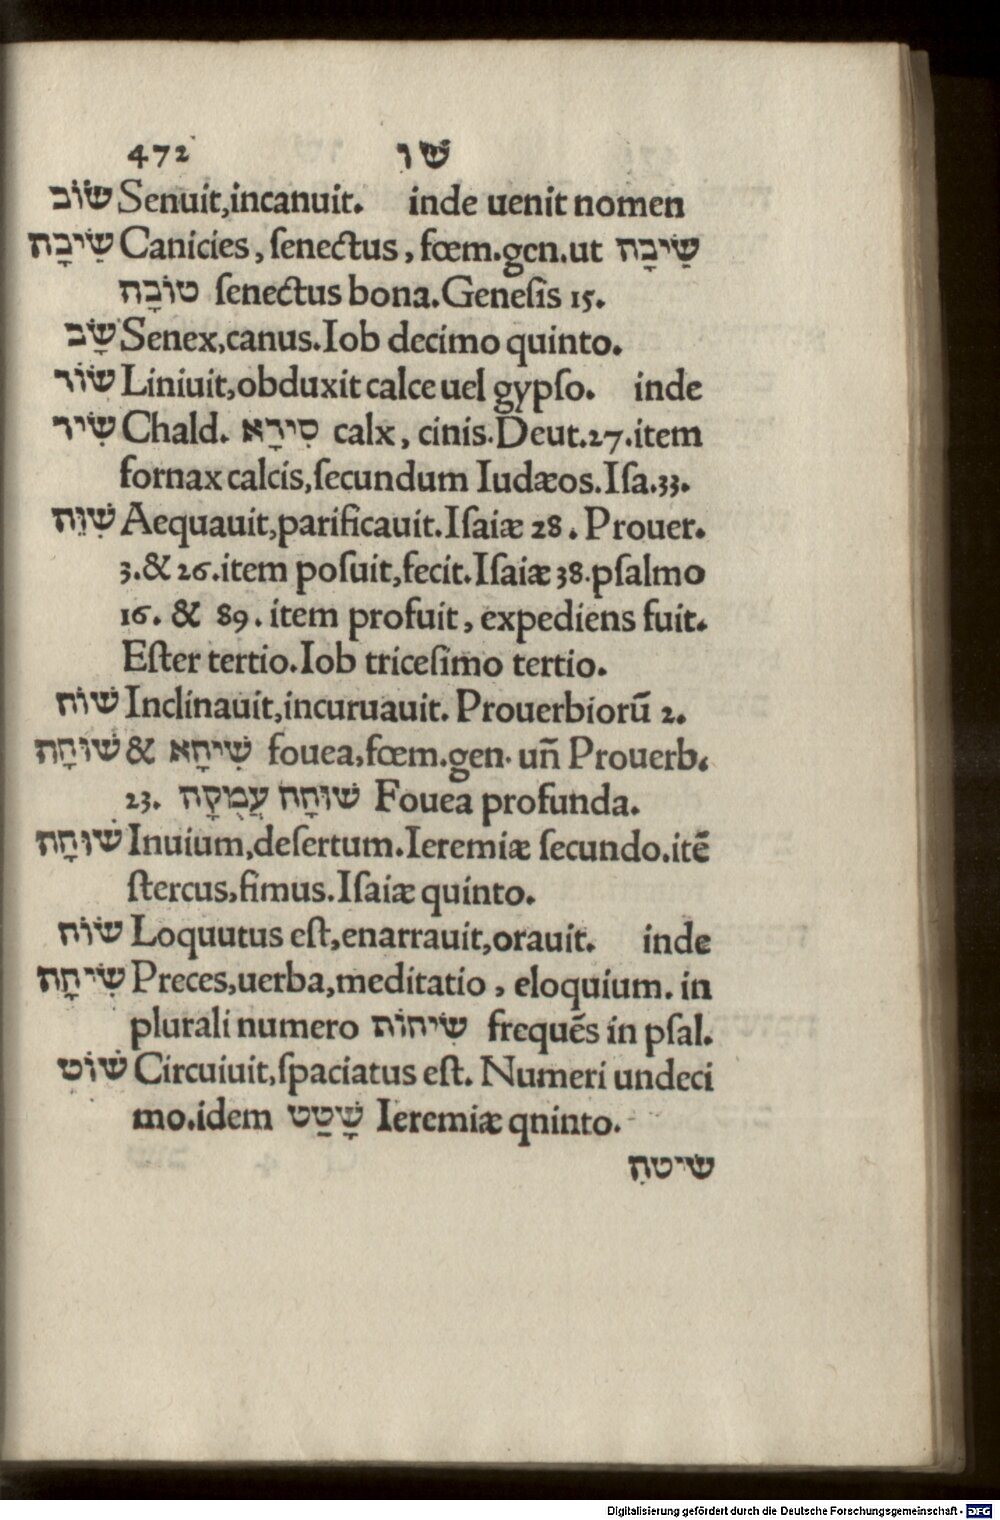 472 שׁו
שׂוֹב Senuit,incanuit. inde uenit nomen
שֵׂיבָה Canicies, ſenectus, fœm.gen.ut שֵׂיבָה
טוֹבָה ſenectus bona.Geneſis 15.
שָׂב Senex,canus.Iob decimo quinto.
שׂוֹר Liniuit,obduxit calce uel gypſo. inde
שִׂיר Chald. סִירָא calx, cinis.Deut.27.item
fornax calcis,ſecundum Iudæos.Iſa.33.
שִׁוֵּה Aequauit,parificauit.Iſaiæ 28. Prouer.
3.& 26.item poſuit,fecit.Iſaiæ 38.pſalmo
16. & 89. item profuit, expediens fuit.
Eſter tertio.Iob triceſimo tertio.
שׁוֹח Inclinauit,incuruauit. Prouerbiorū 2.
שׁוּחָה & שִׁיחָא fouea,fœm.gen. uñ Prouerb.
23. שׁוּחָה עֲמֻקָּה Fouea profunda.
שׁוּחָה Inuium,deſertum.Ieremiæ ſecundo.itē
ſtercus,fimus.Iſaiæ quinto.
שׂוֹח Loquutus eſt,enarrauit,orauit. inde
שִׂיחָה Preces,uerba,meditatio, eloquium. in
plurali numero שִׂיחוֹת frequēs in pſal.
שׁוֹט Circuiuit,ſpaciatus eſt. Numeri undeci
mo.idem שָׁטַט Ieremiæ qninto.
שׁיטה
Digitalisierung gefördert durch die Deutsche Forschungsgemeinschaft - DFG